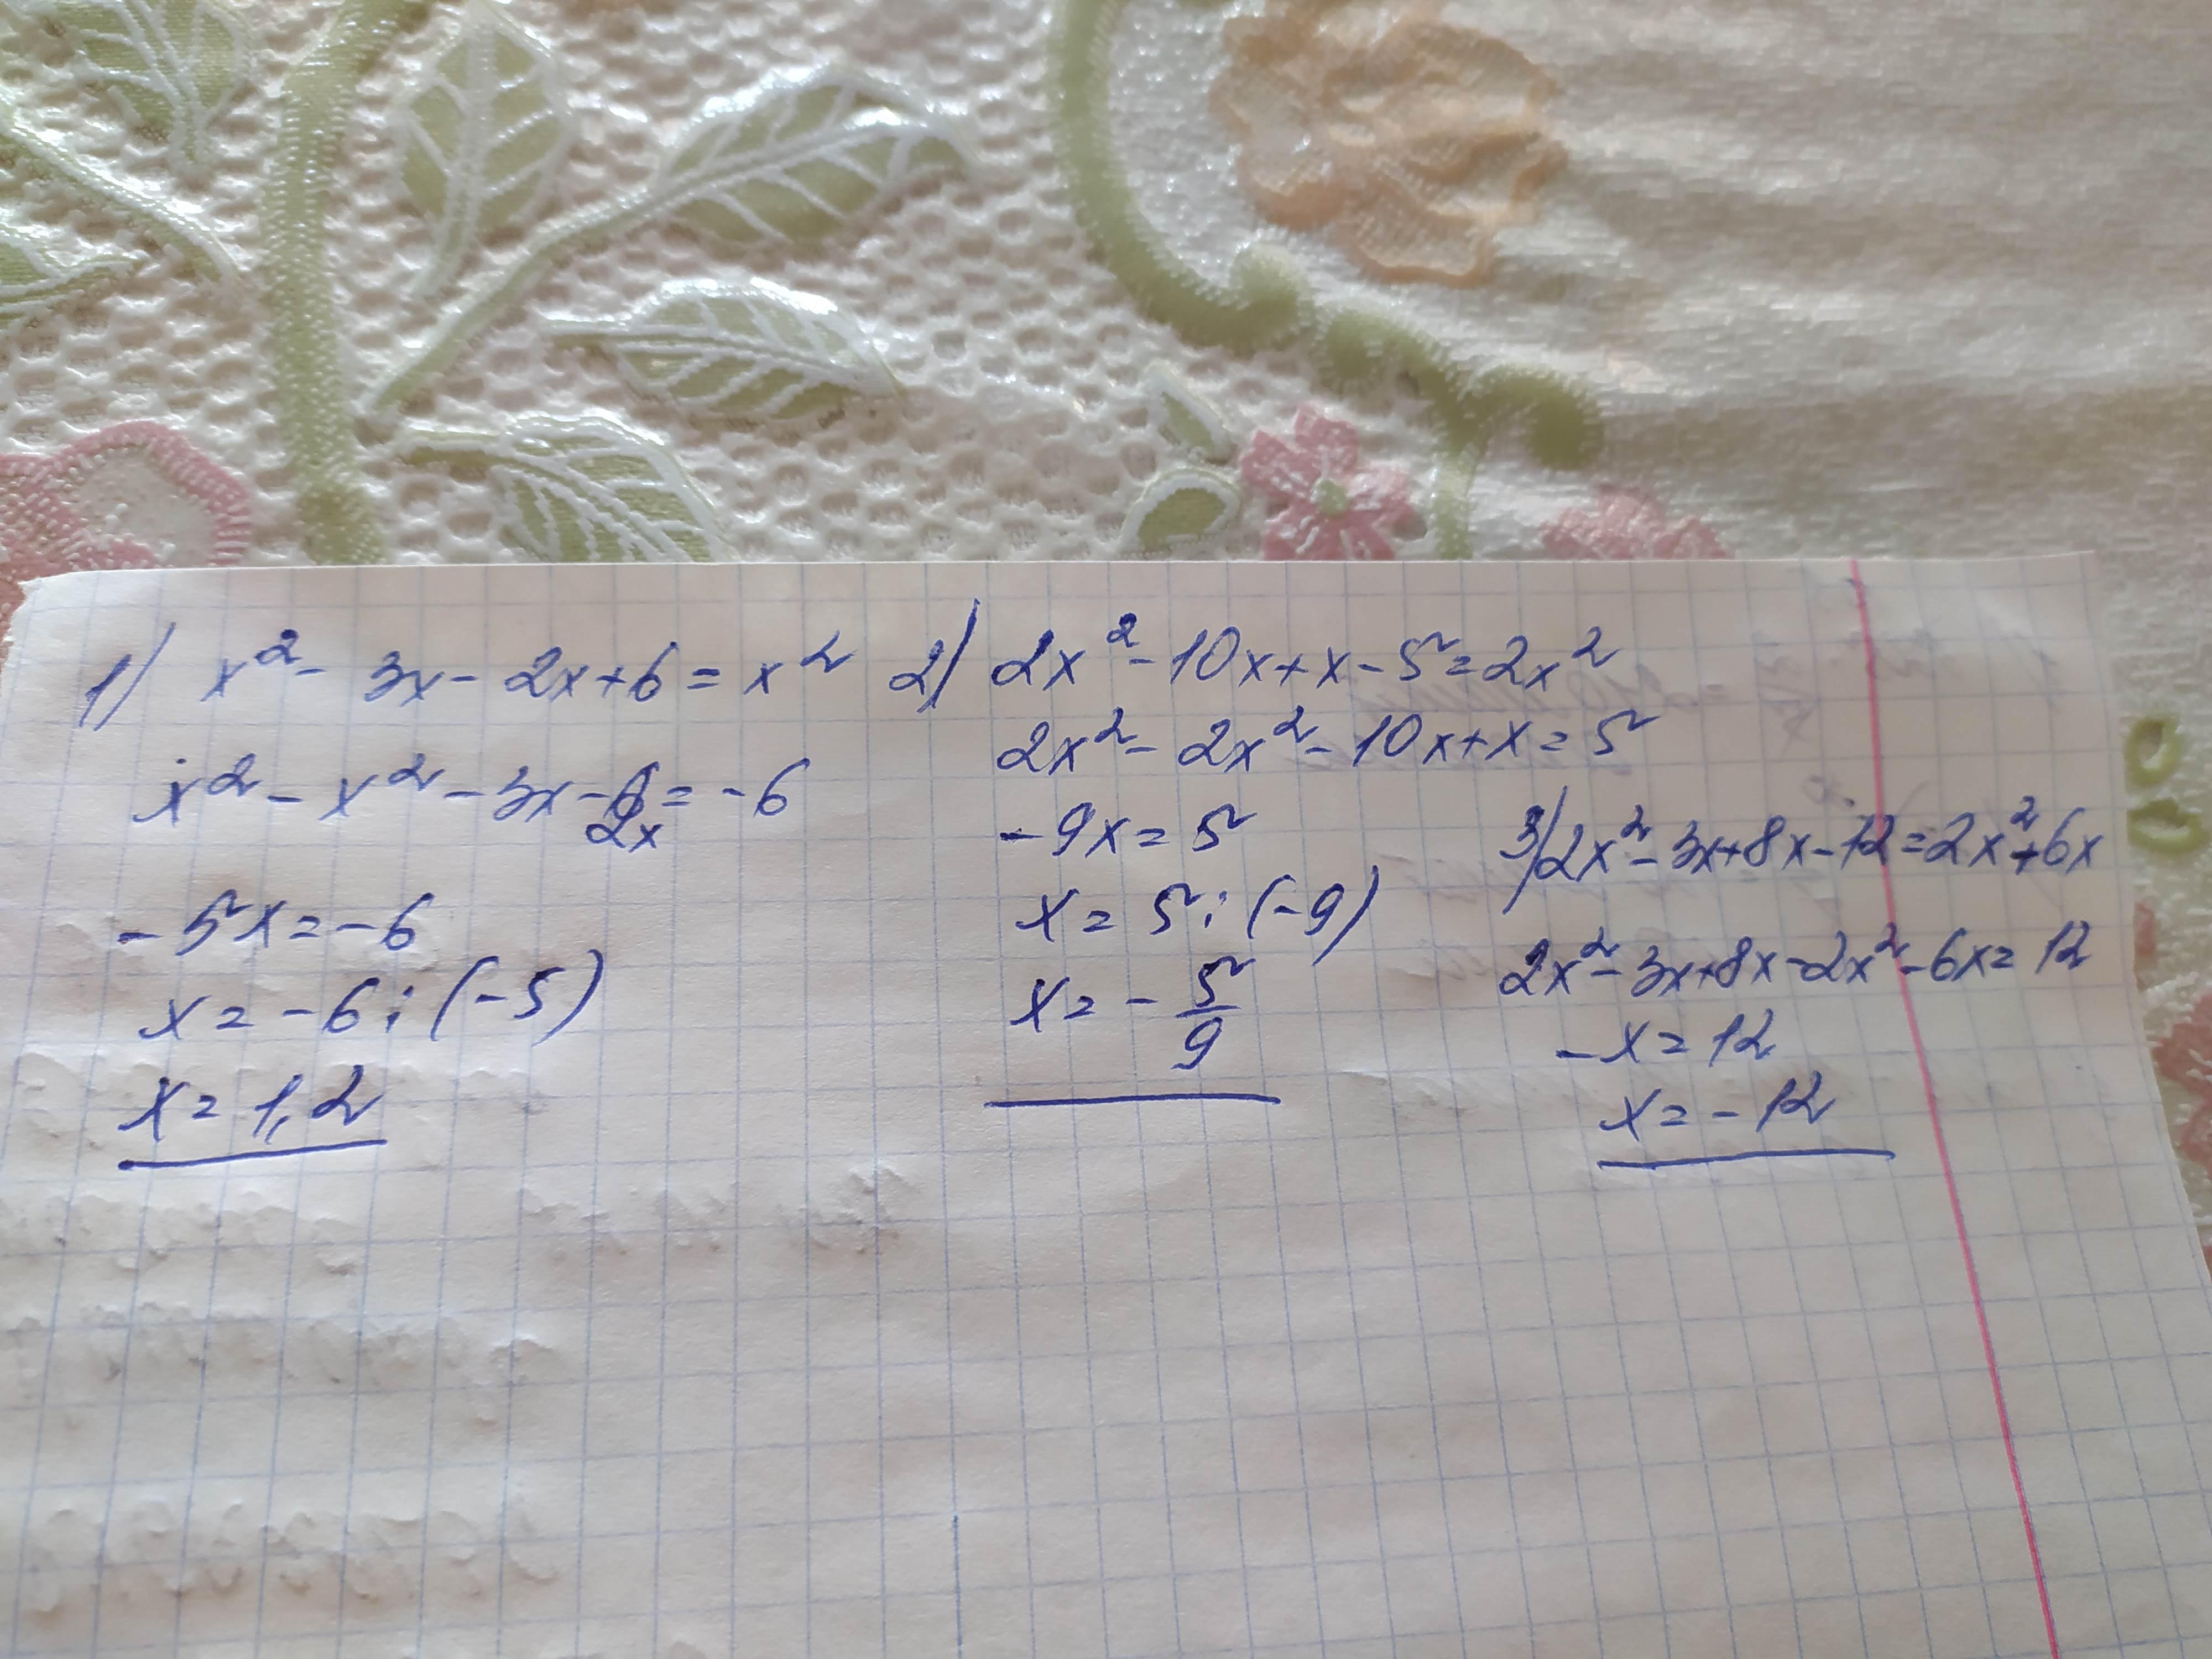 1) x² - 3x - 2x + 6 = x²
x² - x² - 3x - 2x = -6
-5x = -6
x = -6 : (-5)
x = 1,2
2) 2x² - 10x + x - 5 = 2x²
2x² - 2x² - 10x + x = 5
-9x = 5
x = 5 : (-9)
x = - 5/9
3) 2x² - 3x + 8x - 12 = 2x² + 6x
2x² - 3x + 8x - 2x² - 6x = 12
-x = 12
x = -12